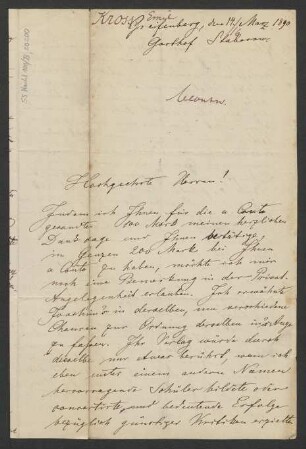 Kross, Emil
Greifenberg, den 14/5 Mai 1890
Gasthof
Hochgeehrte Herren!
Indem ich Ihnen für die a Conto
gesandten 100 Mark meinen herzlichen
Dank sage und Ihnen bestätige,
im Ganzen 200 Mark bei Ihnen
a Conto zu haben, möchte ich mir
noch eine Bemerkung in der Privat-
Angelegenheit erlauben. Ich erwähnte
in derselben, um verschiedene
Chancen zur Ordnung derselben ins Auge
zu fassen. Ihr Verlag würde durch
dieselbe nur etwas berührt, wenn ich
eben unter einem andern Namen
hervorragende Schüler bildete oder
concertirte, und bedeutende Erfolge
bezüglich günstiger Kritiken erzielte